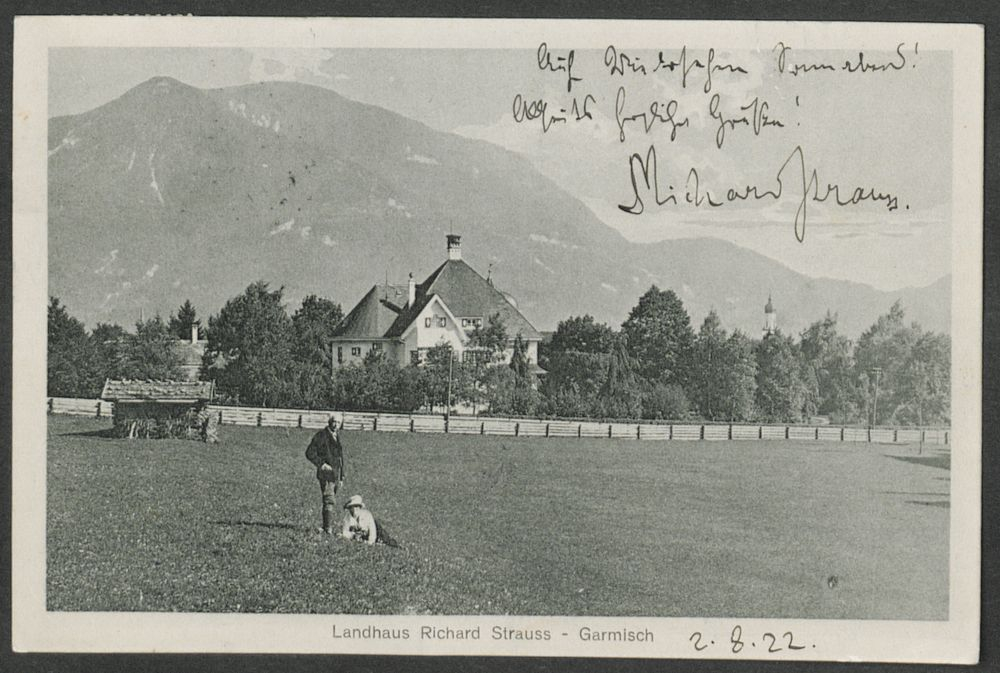 Auf Wiedersehen Sonnabend!
herzliche Grüße!
Richard Strauss.
Landhaus Richard Strauss - Garmisch
2. 8. 22.